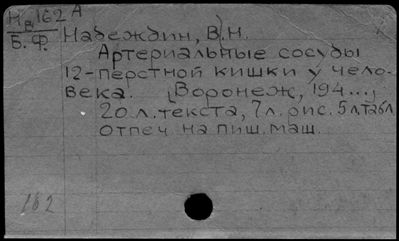 Нв162А
Б.Ф. Надеждин, В.Н.
Артериальные сосуды
12-перстной кишки у чело-
века. [Воронеж, 194...]
20 л. текста, 7 л. рис. 5 л. табл.
отпеч. на пиш. маш.
162